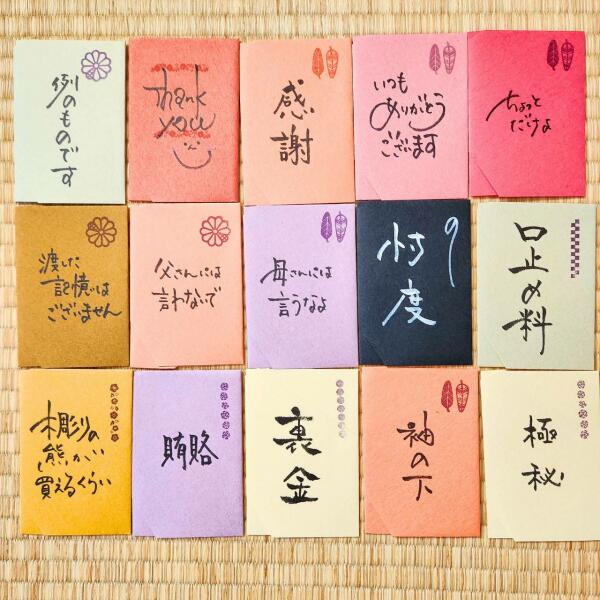 例のものです
thank
you
感謝
いつも
ありがとう
ございます
ちょっと
だけよ
渡した
記憶は
ございません
父さんには
言わないで
母さんには
言うなよ
忖度
口止め料
木彫りの
熊がい
買えるくらい
賄賂
裏金
袖の下
極秘